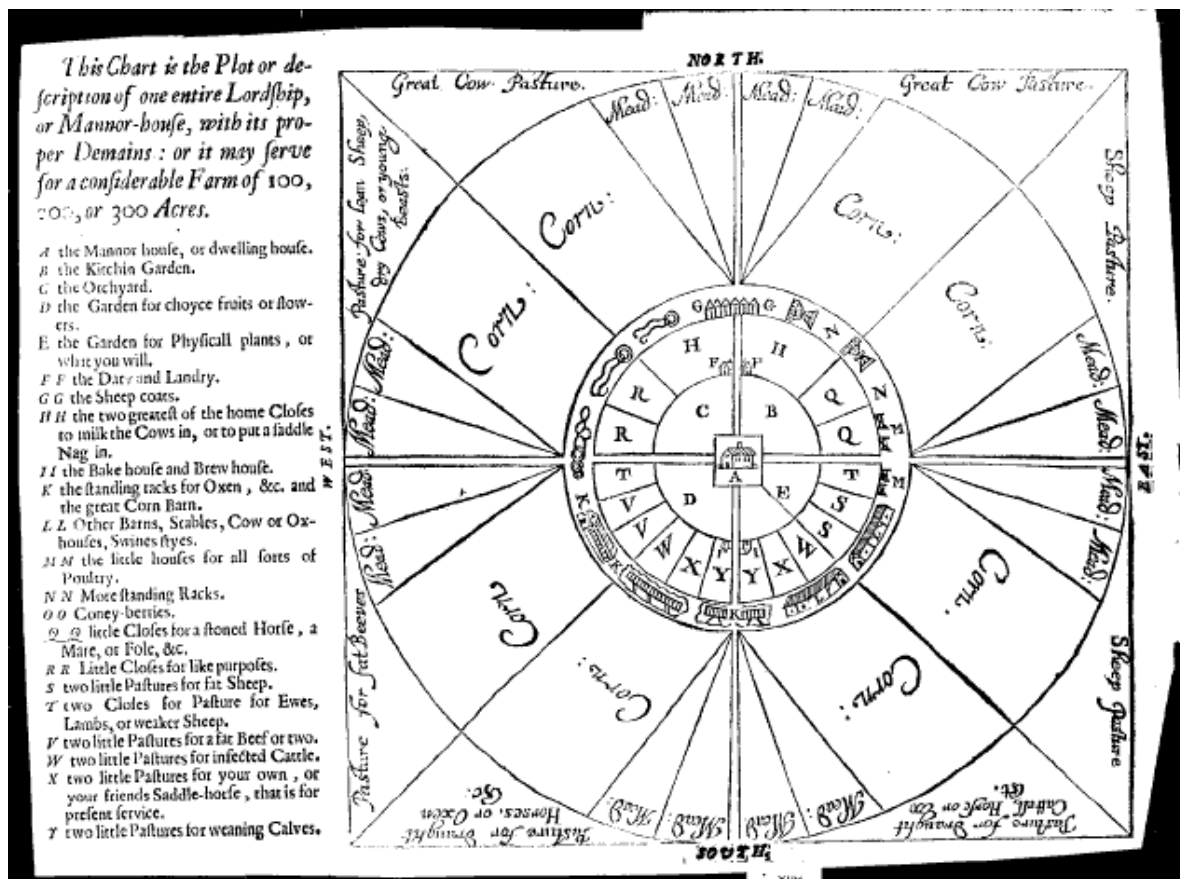 This Chart is the Plot or de-
ſcription of one entire Lordſhip,
or Mannor-houſe, with its pro-
per Demains : or it may ſerve
for a conſiderable Farm of 100,
200, or 300 Acres.
A the Mannor houſe, or dwelling houſe.
B the Kitchin Garden.
C the Orchyard.
D the Garden for choyce fruits or flow-
ers.
E the Garden for Phyſicall plants, or
what you will.
F F the Dary and Landry.
G G the Sheep coats.
H H the two greateſt of the home Cloſes
to milk the Cows in, or to put a ſaddle
Nag in.
I I the Bake houſe and Brew houſe.
K the ſtanding racks for Oxen, &c. and
the great Corn Barn.
L L Other Barns, Stables, Cow or Ox-
houſes, Swines ſtyes.
M M the little houſes for all ſorts of
Poultry.
N N More ſtanding Racks.
O O Coney-berries.
Q Q little Cloſes for a ſtoned Horſe, a
Mare, or Fole, &c.
R R Little Cloſes for like purpoſes.
S two little Paſtures for fat Sheep.
T two Cloſes for Paſture for Ewes,
Lambs, or weaker Sheep.
V two little Paſtures for a fat Beef or two.
W two little Paſtures for infected Cattle.
X two little Paſtures for your own, or
your friends Saddle-horſe, that is for
preſent ſervice.
Y two little Paſtures for weaning Calves.
NORTH.
Great Cow Pasture.
Great Cow Pasture.
Mead:
Mead:
Mead:
Mead:
Pasture for lean Sheep,
dry Cows, or young
beasts.
Sheep Pasture.
Corn:
Corn:
Corn:
Corn:
Mead:
Mead:
Mead:
Mead:
G
G
N
N
H
F
F
H
R
Q
C
B
R
Q
M
WEST.
A
EAST
Mead:
Mead:
Mead:
Mead:
T
T
M
K
V
D
E
S
V
S
L
W
I
I
W
K
X
Y
Y
X
L
K
Corn
Corn:
Corn:
Corn:
Pasture for fat Beeves
Sheep Pasture
Mead:
Mead:
Mead:
Mead:
Pasture for Draught
Horses, or Oxen
&c.
Pasture for Draught
Cattell, Horse or Ox
&c.
SOUTH.